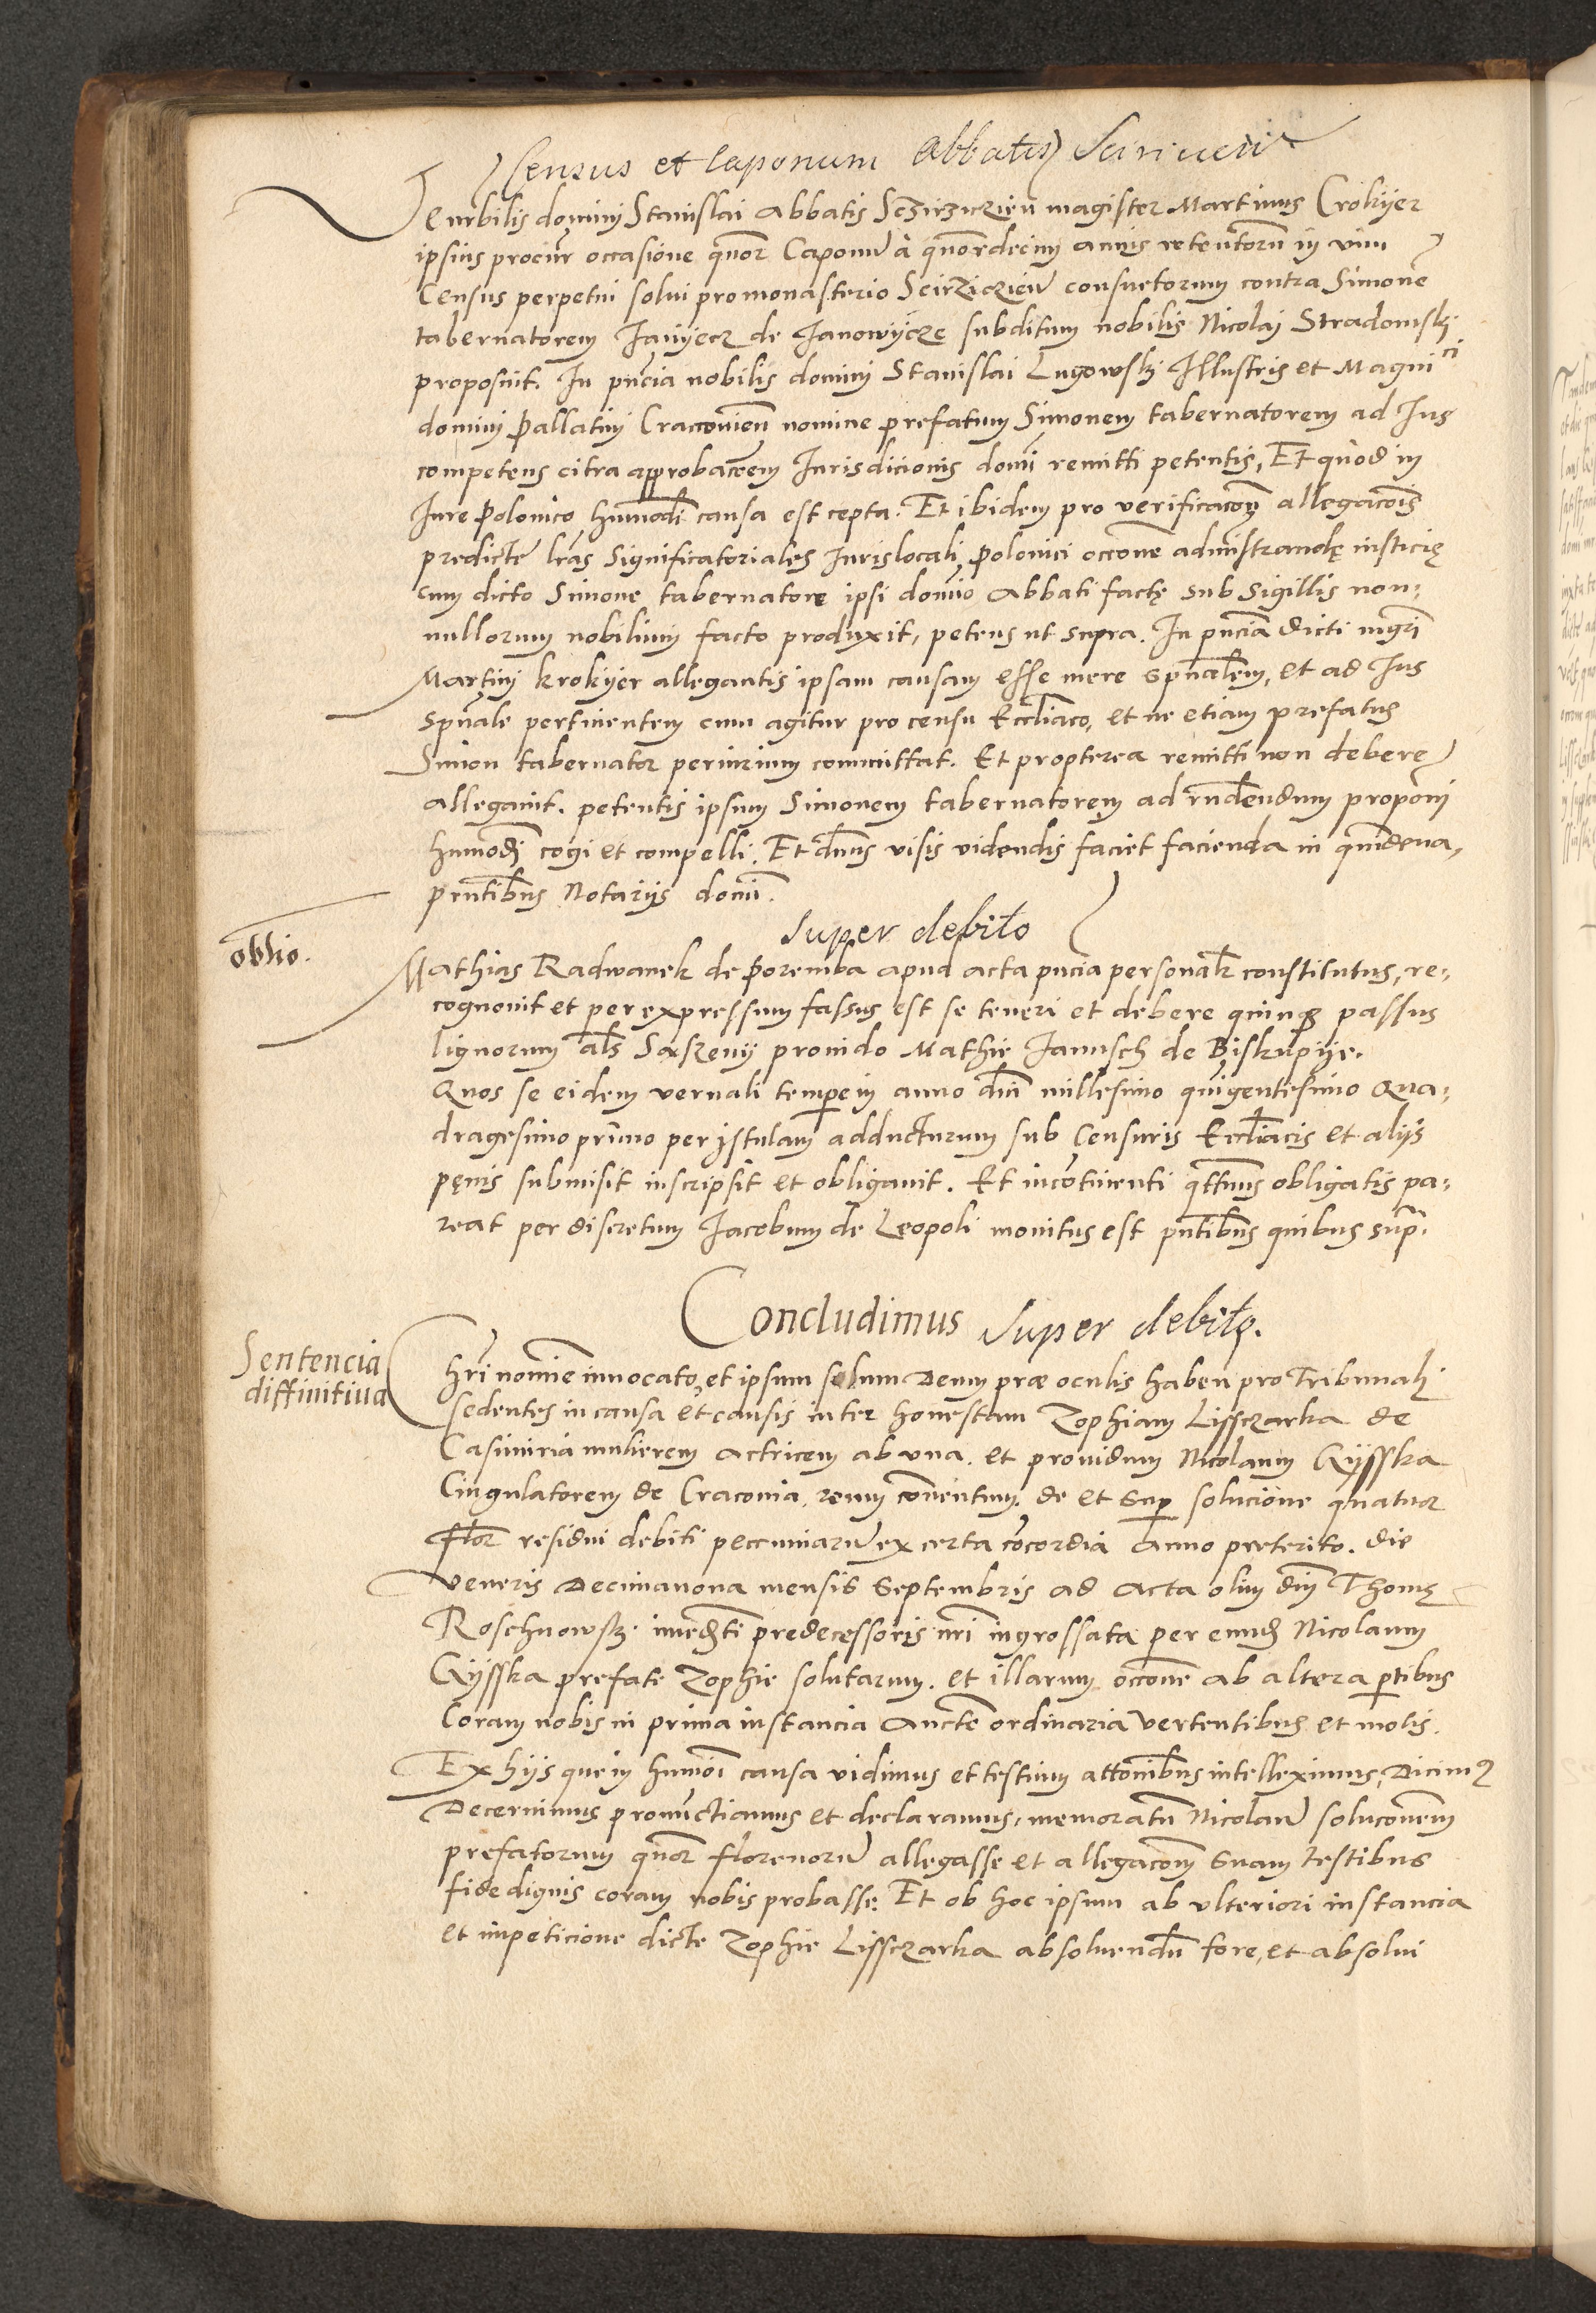 Census et Caponum Abbatis
Venerbilis dominj Stanislai Abbatis Sczirziczien magister Martinus Crokyer
ipsius procur occasione quor Caponu a quordecim annis retentorum in vim
Census perpetui solui pro monasterio Scirziczien consuetorum contra Simone
tabernatorem Janyecz de Janowycze subditum nobilis Nicolaj Stradomskj
proposuit. In pncia nobilis dominj Stanislai Lugowskj Illustris et Magnici
dominj Pallatinj Cracouien nomine prefatum Simonem tabernatorem ad Jus
competens citra approbacoem Jurisdicionis domi remitti petentis, Et quod in
Jure Polonico humodi causa est cepta. Et ibidem pro verificacoe allegacois
predicte lras Significatoriales Juris locali Polonici occone administrande iusticię
cum dicto Simone tabernatore ipsi domino Abbati factę sub Sigillis non-
nullorum nobilium facto produxit, petens ut supra. In pncia dicti mgri
Martinj Krokyer allegantis ipsam causam esse mere spualem, et ad Jus
spuale pertinentem cum agitur pro censu Eccliaco, et ne etiam prefatus
Simon tabernator periurium committat. Et propterea remitti non debere
allegauit. petentis ipsum Simonem tabernatorem ad rndendum proponj
humodi cogi et compelli. Et dnus visis videndis faciet facienda in quindena,
pntibus Notarijs domi.
Super debito
oblio.
Mathias Radwanek de Poremba apud acta pncia personalr constitutus, re-
cognouit et per expressum fassus est se teneri et debere quinq passus
lignorum als Sąszenij prouido Mathie Janusch de Biskupije.
Quos se eidem vernali tempe in anno dni millesimo quigentesimo Qua-
dragesimo primo per Istulam adducturum sub Censuris Eccliacis et alijs
pęnis submisit inscripsit et obligauit. Et incontinenti qttnus obligatis pa-
reat per discretum Jacobum de Leopoli monitus est pntibus quibus sup.
Concludimus Super debito.
Sentencia
diffinitiua
Chri nomine inuocato, et ipsum solum Deum præ oculis haben pro Tribunalj
sedentes in causa et causis inter honestam Zophiam Lissczarka de
Casimiria mulierem actricem ab vna. et prouidum Nicolaum Gysska
Cingulatorem de Cracouia, reum conuentum. de et sup solucione quatuor
flor residui debiti pecuniaru ex certa cocordia Anno preterito. die
Veneris Decimanona mensis Septembris ad Acta olim dni Thomę
Roschnowskj. imediti predecessoris nri ingrossata per eund Nicolaum
Gysska prefate Zophie solutarum. et illarum occone ab altera ptibus
Coram nobis in prima instancia Aucte ordinaria vertentibus et motis.
Ex hijs que in humoi causa vidimus et testium attonibus intelleximus, Dicimus
Decernimus pronunctiamus et declaramus, memoratu Nicolau soluconem
prefatorum quor florenoru allegasse et allegacom suam testibus
fide dignis coram nobis probasse. Et ob hoc ipsum ab vlteriori instancia
et impeticione dicte Zophie Lissczarka absoluendu fore, et absolui